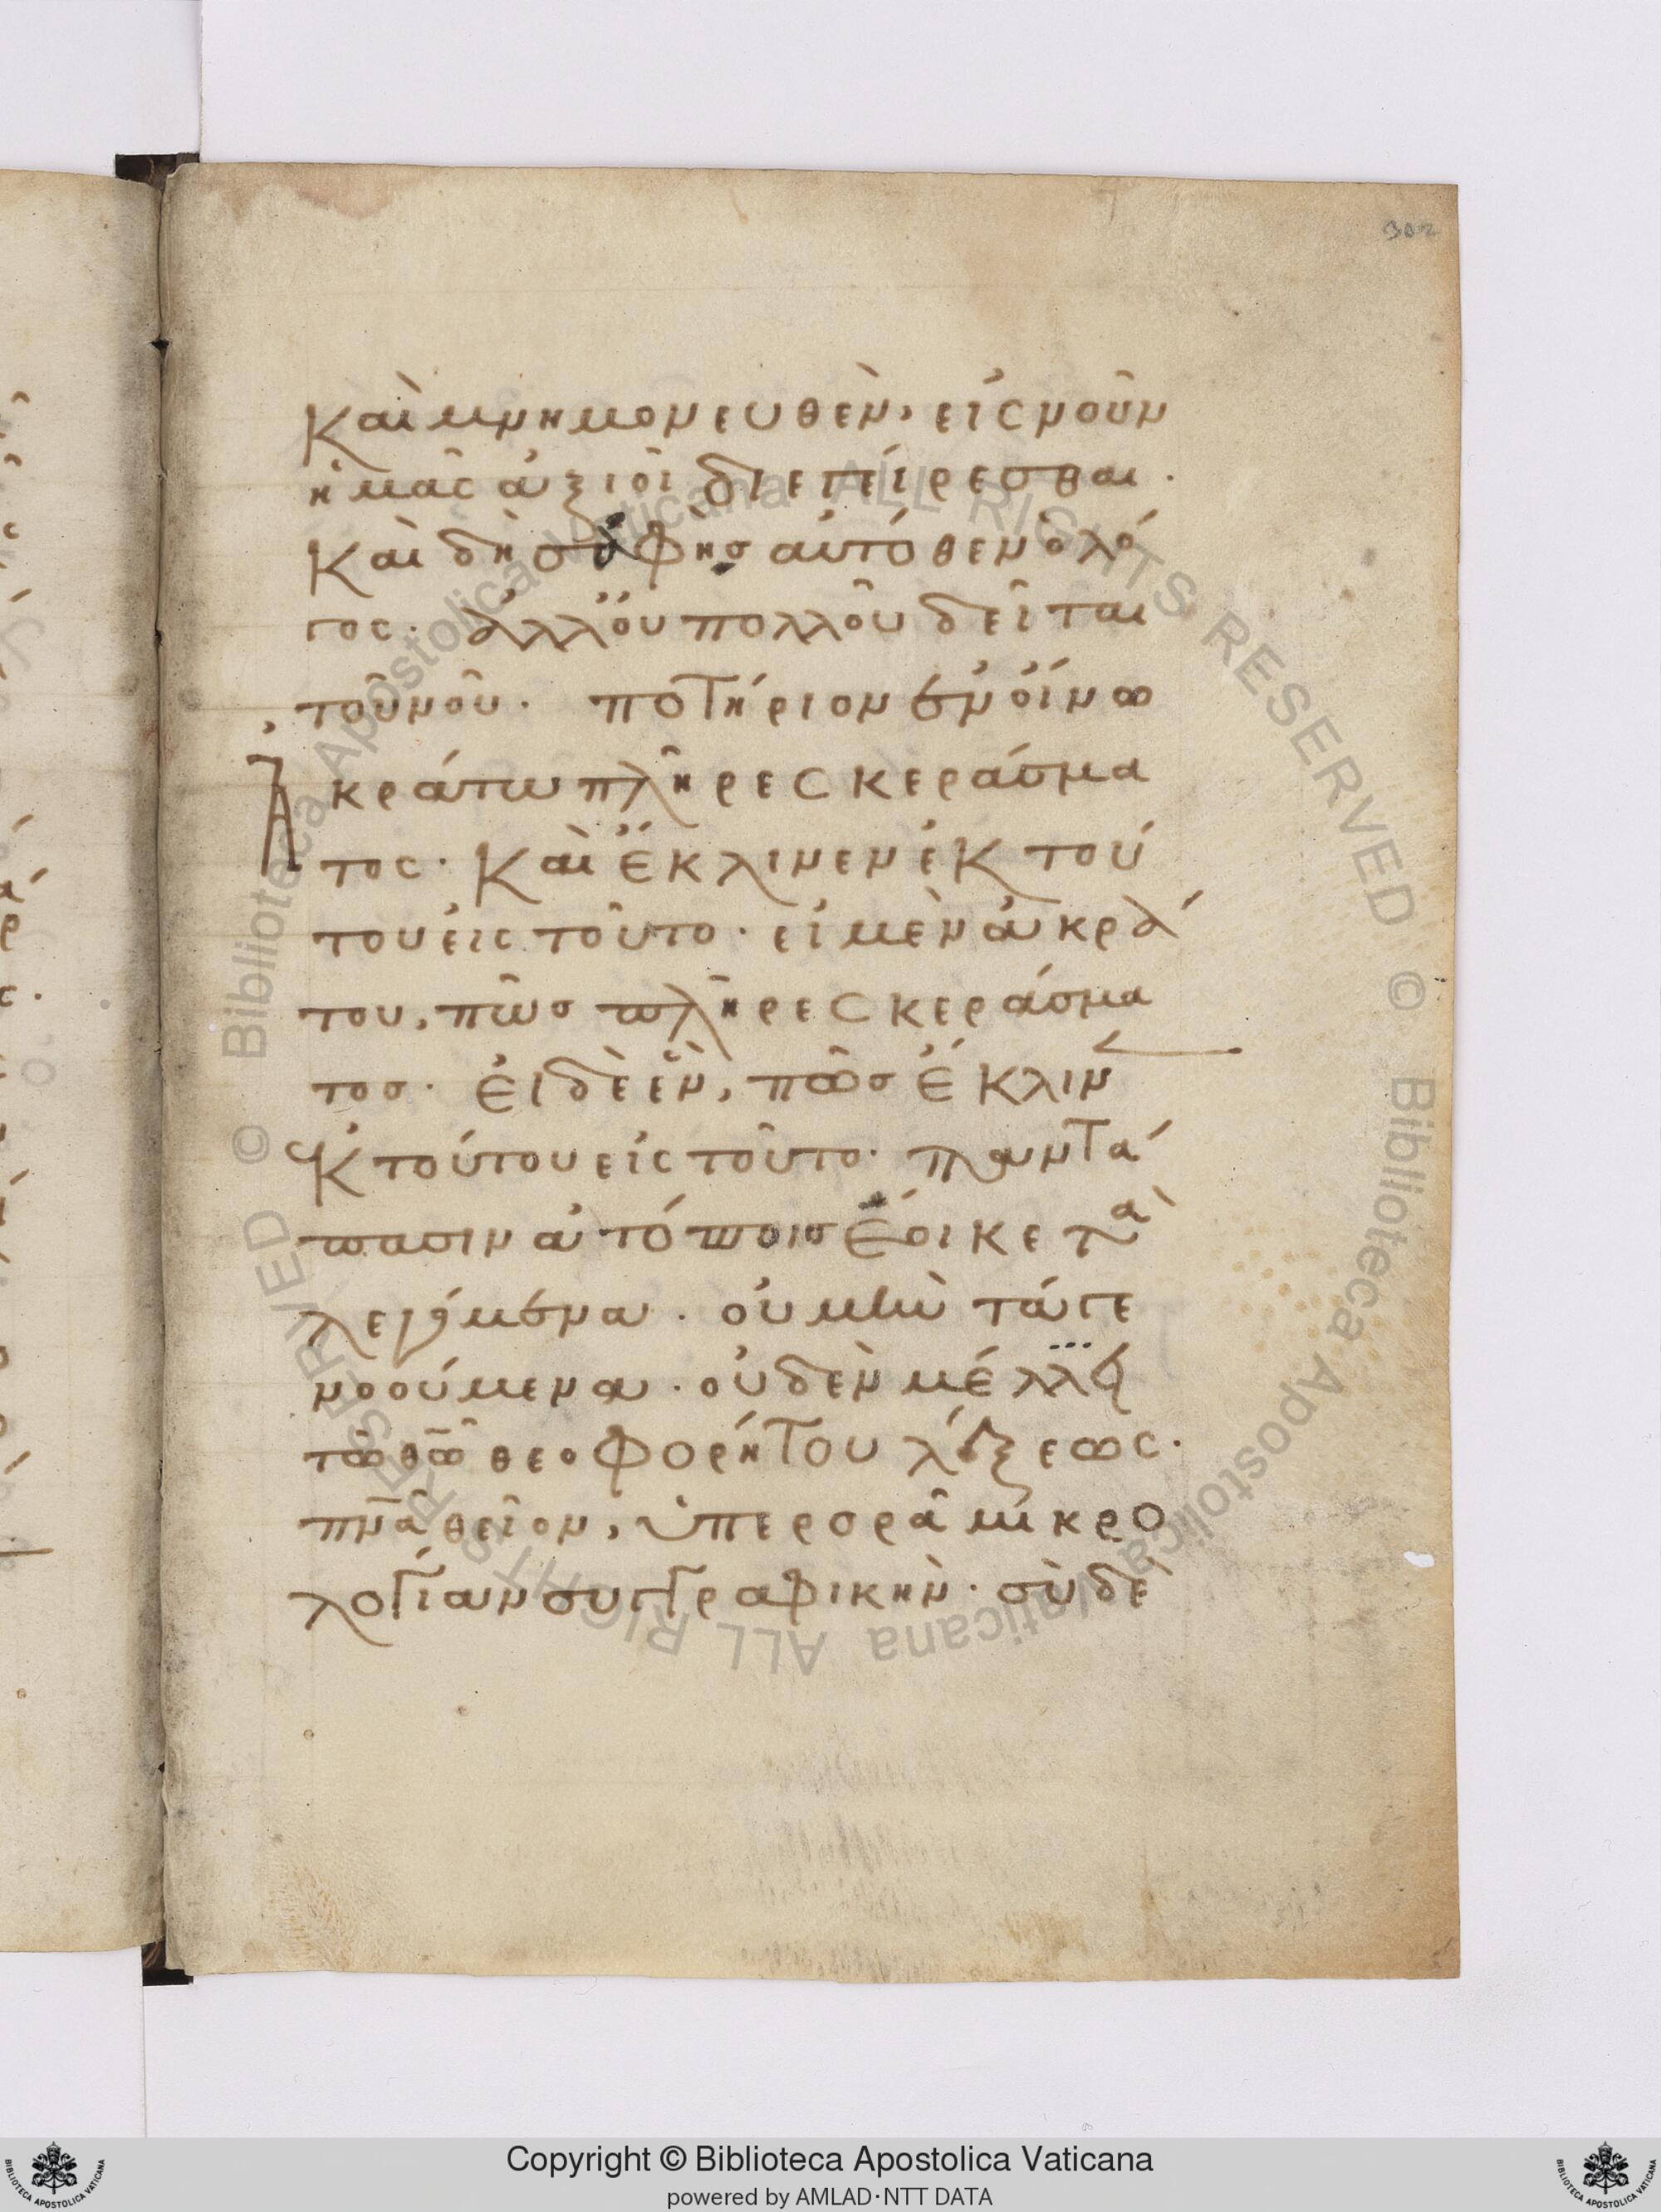 302
Καὶ μνημονευθὲν, εἰς νοῦν
ἡμᾶς ἀξιοῖ διεπείρεσθαι.
Καὶ δὴ σαφὴσ αὐτόθεν ὁ λό
γος. ἀλλ' οὐ πολλοῦ δεῖται
τοῦ νοῦ. ποτήριον ἐν οἴνω
Ἀκράτω πλῆρες κεράσμα
τος. Καὶ ἔκλινεν ἐκ τού
του εἰς τοῦτο. εἰ μὲν ἀκρά
του, πῶσ πλῆρες κεράσμα
τοσ. εἰ δὲ ἐν, πῶσ ἔκλιν
ἐκ τούτου εἰς τοῦτο. παντά
πασιν ἀτόποισ ἔοικε τὰ
λεγόμενα. οὐ μὴν τάγε
νοούμενα. οὐδὲν μέλλει
τῶ θῶ θεοφορήτου λέξεως.
πνᾶ θεῖον, ὑπερορᾶ μικρο
λογίαν συγγραφικὴν. σὺ δὲ
© Biblioteca Apostolica Vaticana ALL RIGHTS RESERVED
© Biblioteca Apostolica Vaticana ALL RIGHTS RESERVED
Copyright © Biblioteca Apostolica Vaticana
powered by AMLAD·NTT DATA
BIBLIOTECA APOSTOLICA VATICANA
BIBLIOTECA APOSTOLICA VATICANA